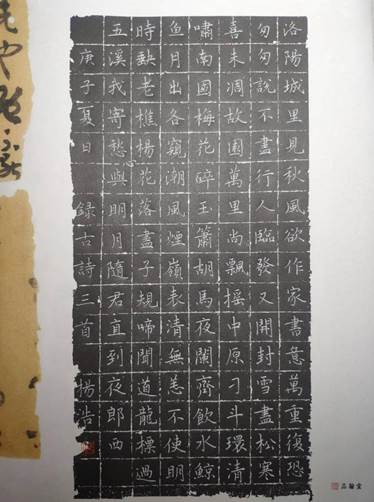 洛陽城里見秋風欲作家書意萬重復恐
匆匆說不盡行人臨發又開封雪盡松寒
喜未凋故園萬里尚飄搖中原刁斗環清
嘯南國梅花醉玉簫胡馬夜闌齊飲水鯨
魚月出各窺潮風煙嶺表清無恙不使明
時缺老樵楊花落盡子規啼聞道龍標過
五溪我寄愁心與明月隨君直到夜郎西
庚子夏日 錄古詩三首 楊浩
品翰堂